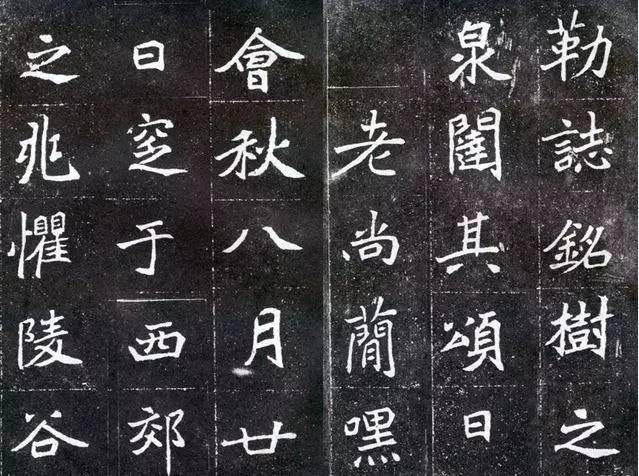 勒誌銘樹之
泉闥其頌曰
老尚簡嘿
會秋八月廿
日窆于西郊
之兆懼陵谷